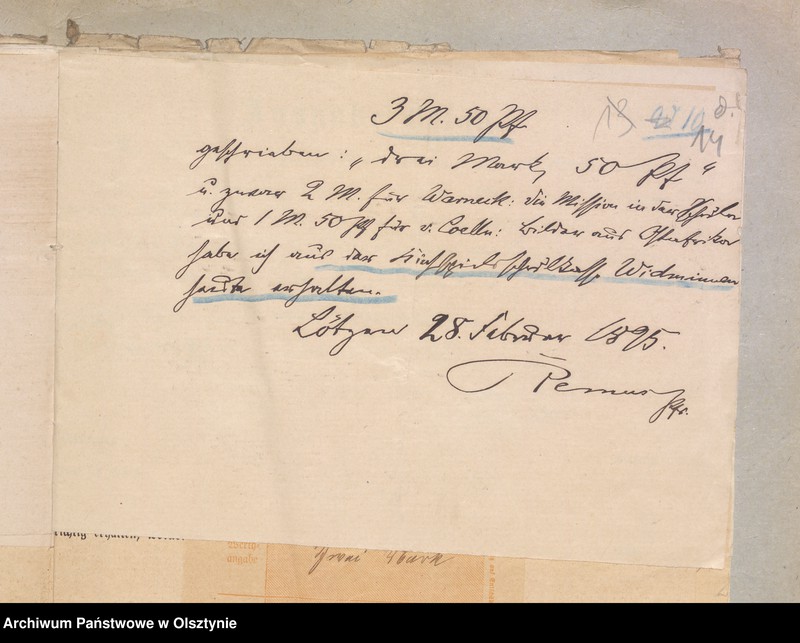 3 M. 50 Pf.
13 10 d. 14
geschrieben: „drei Mark, 50 Pf“
u. zwar 2 M. für Warneck: die Mission in der Schule
und 1 M. 50 Pf für v. Coelln: Bilder aus Ostafrika
habe ich aus der Kirchspiels Schulkasse Widminnen
heute erhalten.
Lötzen 28. Februar 1895.
Remus
Pfr.
richtig erhalten,
Zwei Mark
Archiwum Państwowe w Olsztynie